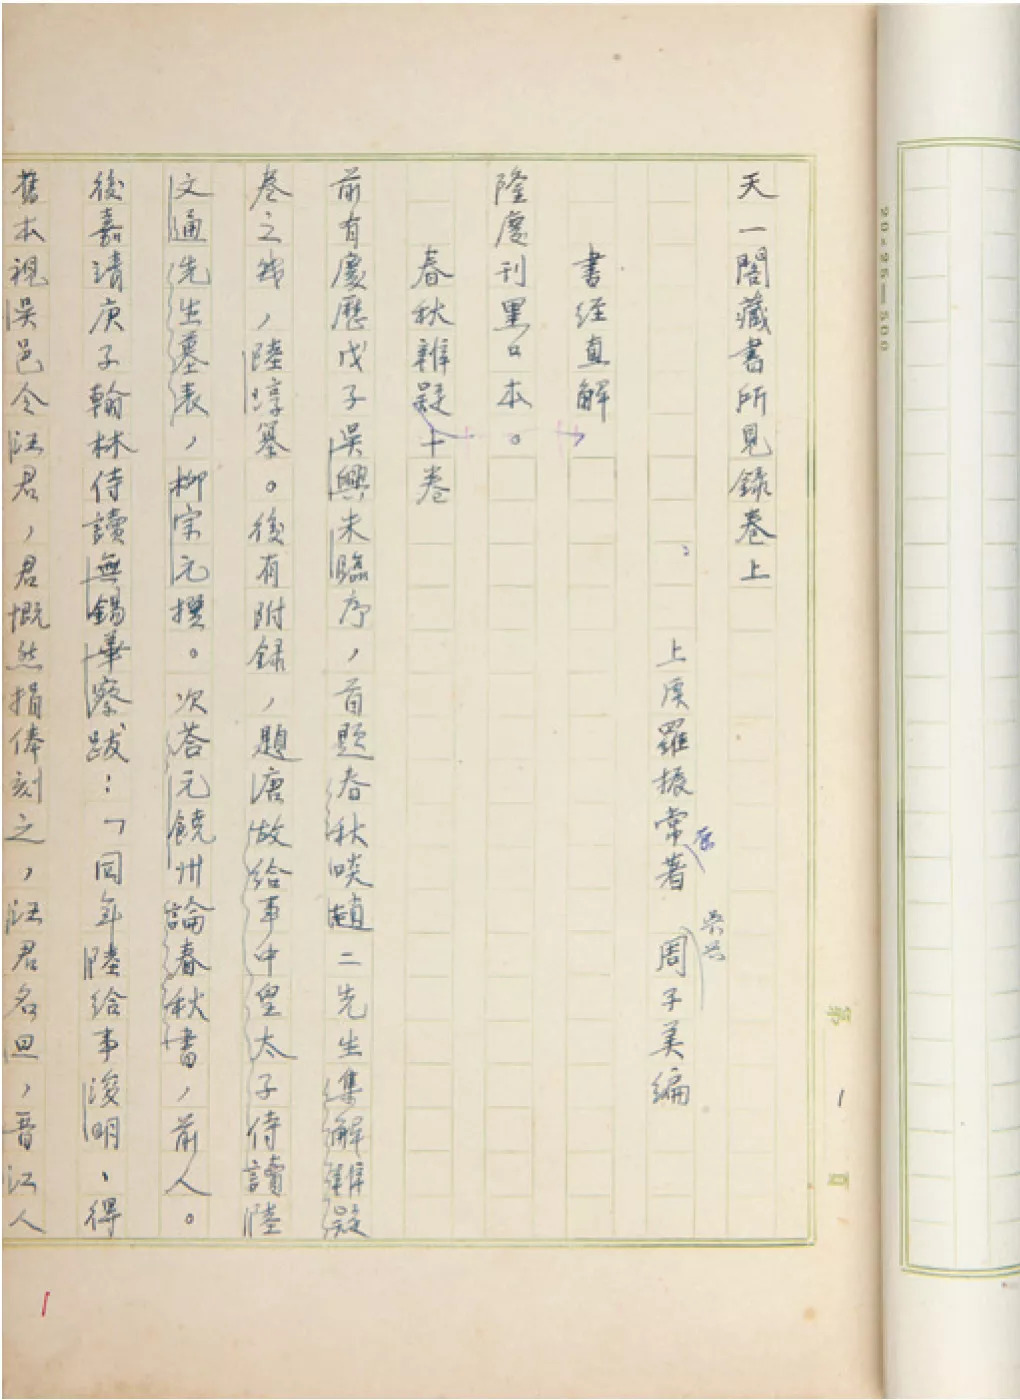 天一閣藏書所見錄卷上
上虞羅振常著 周子美編
吳興
書经直解
隆慶刊黑口本。
春秋辨疑十卷
前有慶歷戊子吳興朱臨序，首題春秋啖趙二先生集解辨疑
卷之幾，陸淳纂。後有附録，題唐故给事中皇太子侍讀陸
文通先生墓表，柳宗元撰。次荅元饒州論春秋書，前人。
後嘉靖庚子翰林侍讀無錫華察跋：「同年陸给事浚明、得
舊本視吳邑令汪君，君慨然捐俸刻之，汪君名旦，晉江人
第1頁
20×25=500
1